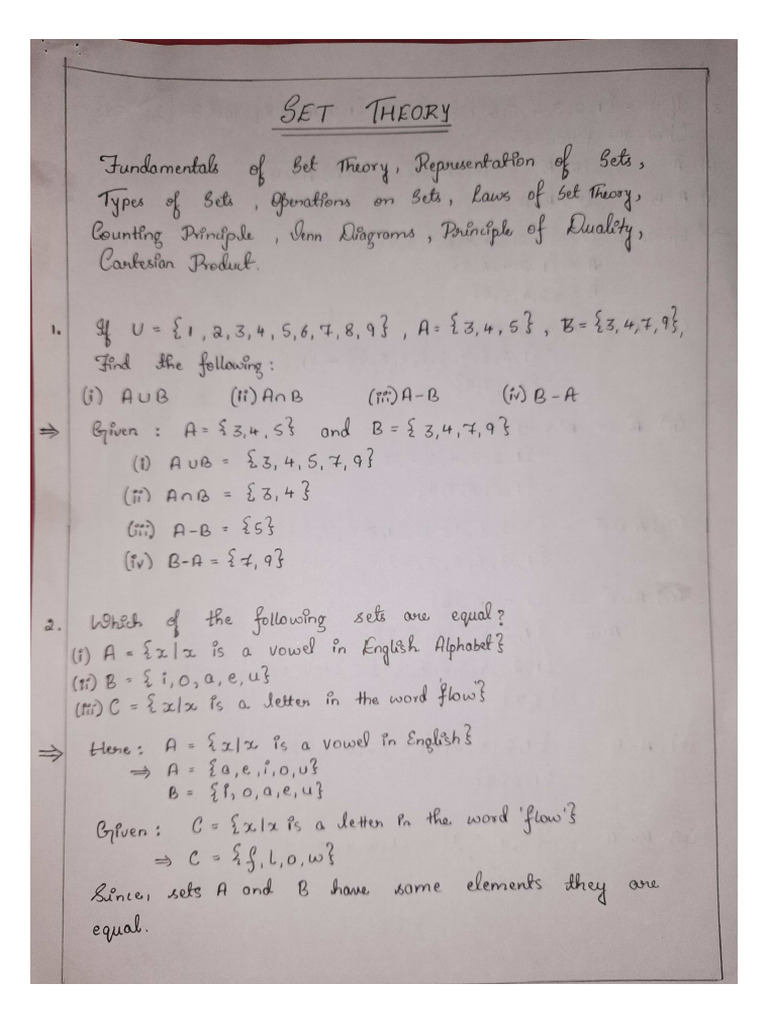 SET THEORY
Fundamentals of Set Theory, Representation of Sets,
Types of Sets, Operations on Sets, Laws of Set Theory,
Counting Principle, Venn Diagrams, Principle of Duality,
Cartesian Product.
1. If U = {1, 2, 3, 4, 5, 6, 7, 8, 9}, A = {3, 4, 5}, B = {3, 4, 7, 9},
Find the following:
(i) A∪B (ii) A∩B (iii) A-B (iv) B-A
⇒ Given: A = {3, 4, 5} and B = {3, 4, 7, 9}
(i) A∪B = {3, 4, 5, 7, 9}
(ii) A∩B = {3, 4}
(iii) A-B = {5}
(iv) B-A = {7, 9}
2. Which of the following sets are equal?
(i) A = {x/x is a vowel in English Alphabet}
(ii) B = {i, o, a, e, u}
(iii) C = {x/x is a letter in the word 'flow'}
⇒ Here: A = {x/x is a vowel in English}
⇒ A = {a, e, i, o, u}
B = {i, o, a, e, u}
Given: C = {x/x is a letter in the word 'flow'}
⇒ C = {f, l, o, w}
Since, sets A and B have same elements they are
equal.